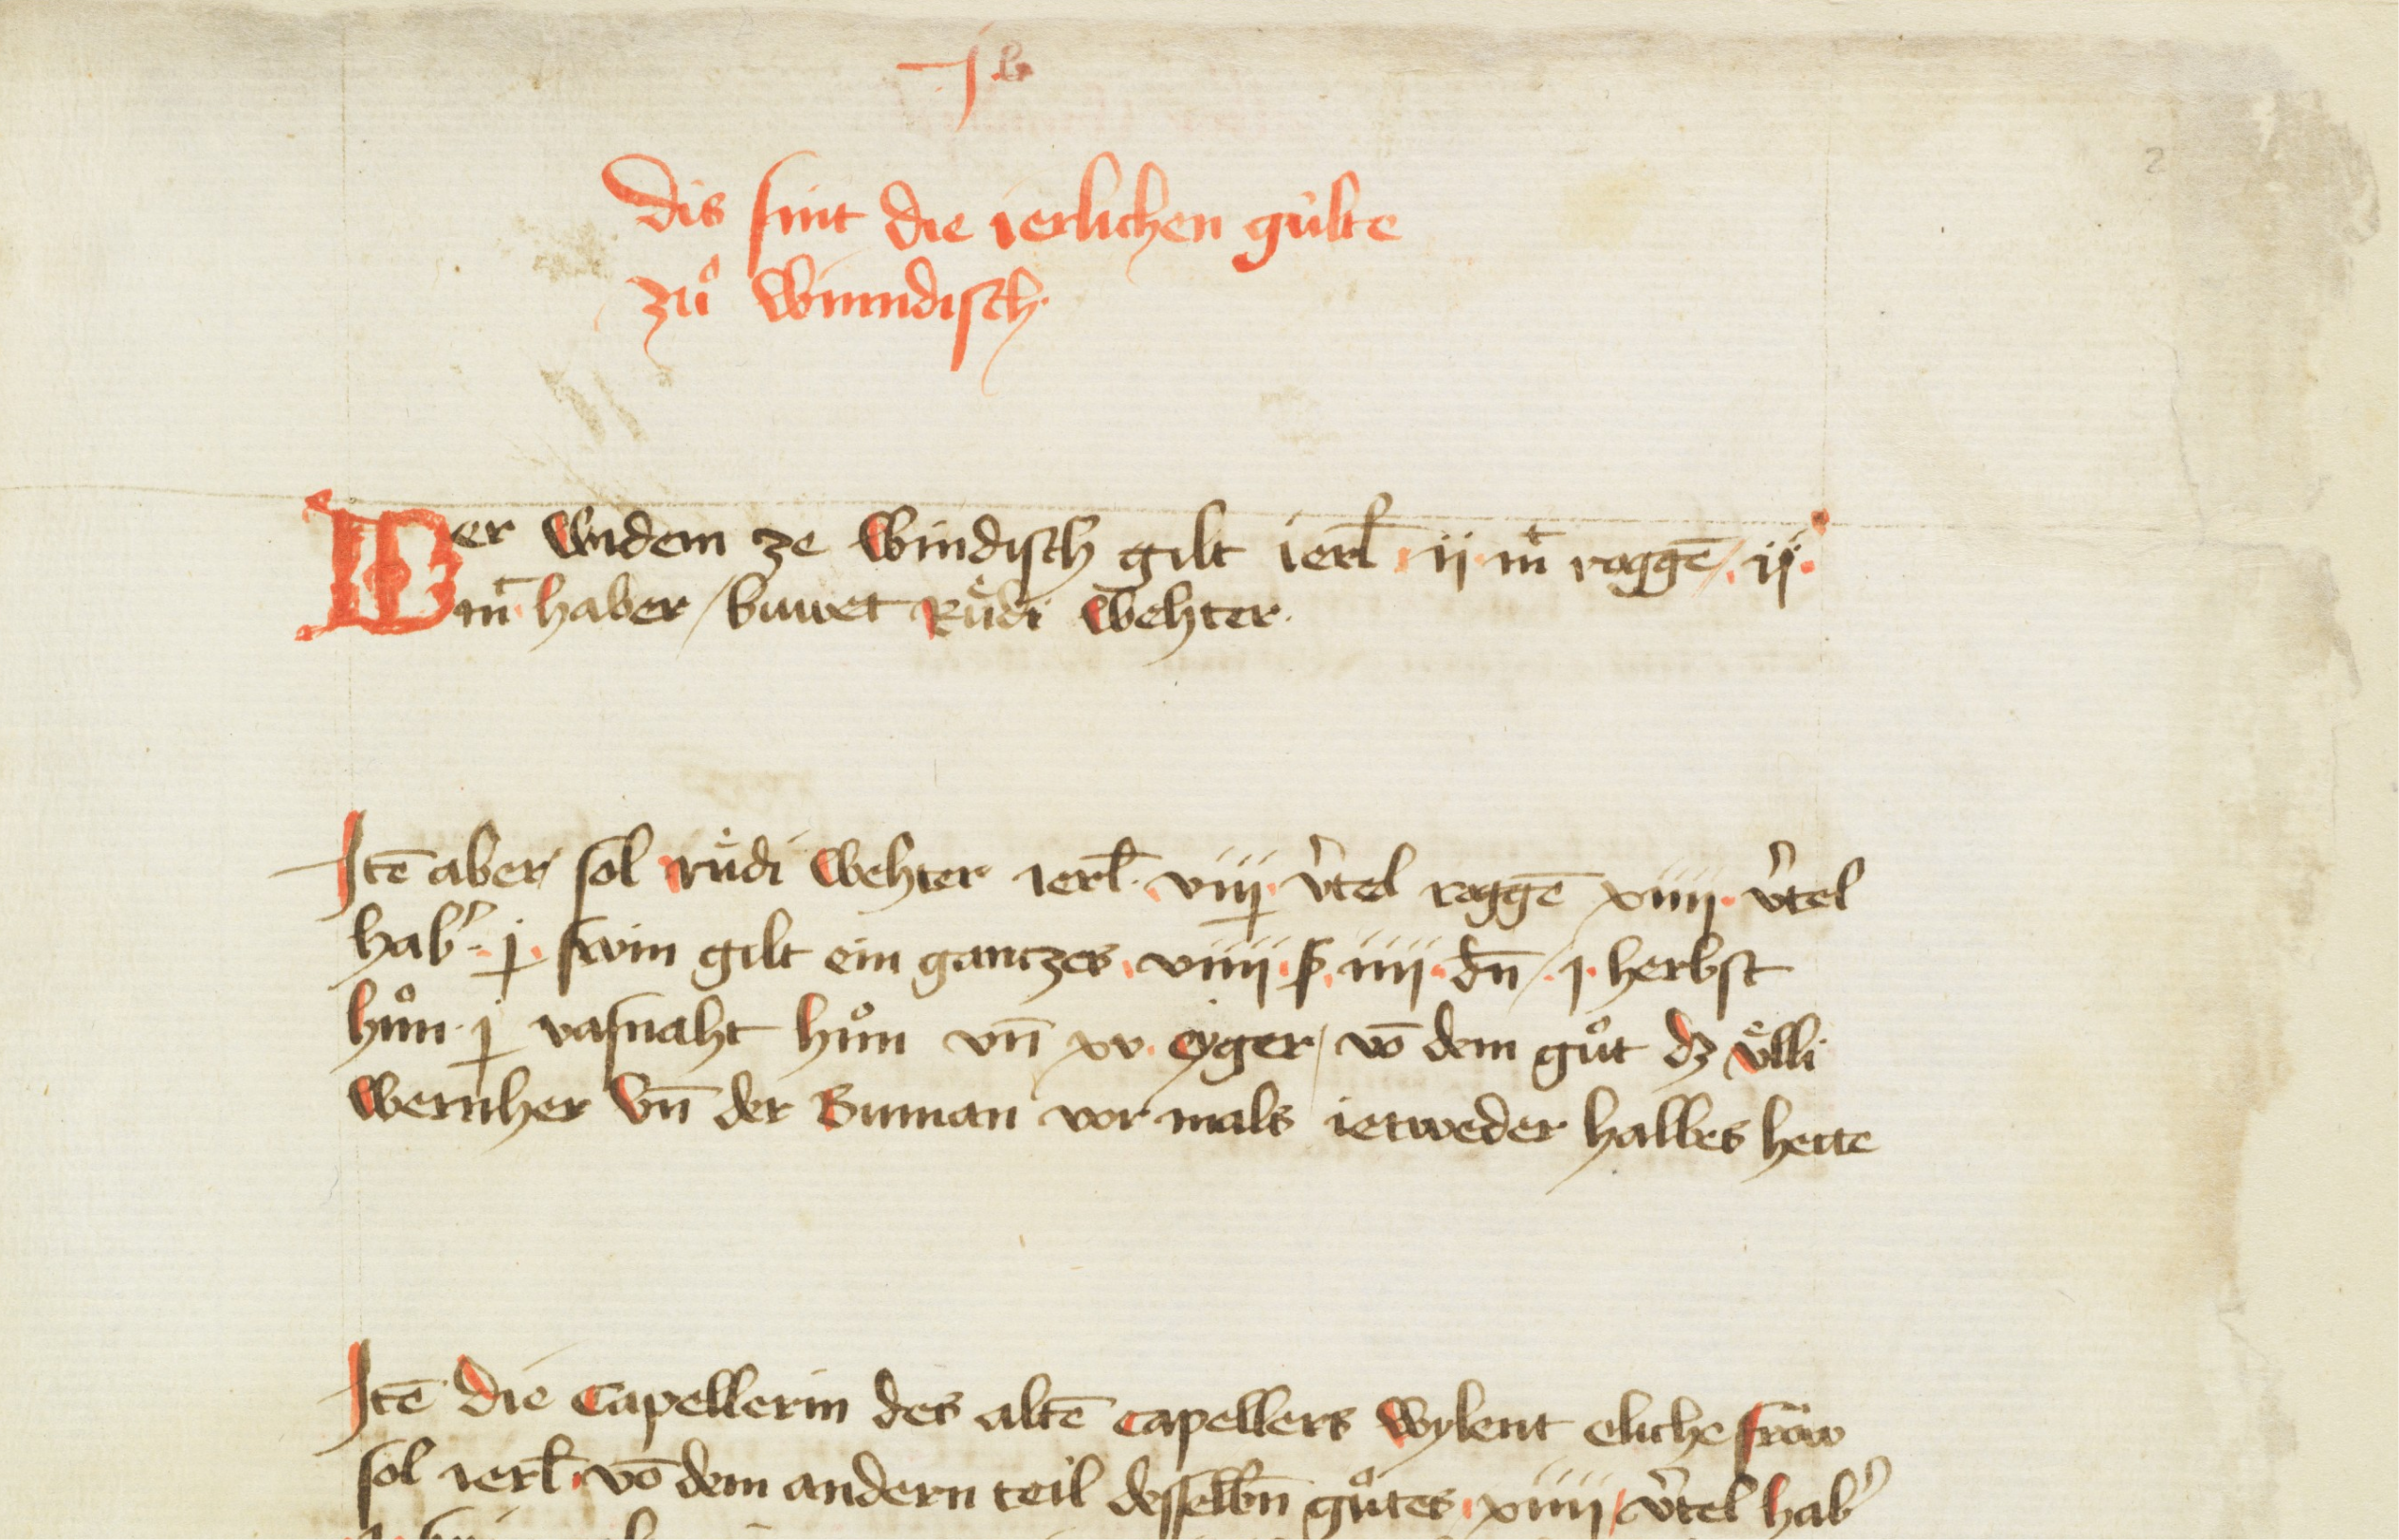 2
Dis sint die ierlichen gúlte
zů Winndisch.
Der widem ze Windisch gilt ierl̄ ii mᷓt roggē / ij.
mᷓt haber / buwet Růͤdi Wehter.
Itē aber sol růͤdi Wehter ierl̄. viij. v̾tel roggē xiiij. v̾tel
hab̾. j. swin gilt ein gantzes. viiij. ß. iiij. dn̄ / j. herbst
hůn. j vasnaht hůn vn̄ xv. eyger / vō dem gůt dz vͤlli
Wernher vn̄ der Buman vor mals ietweder halbes hette
Itē die Capellerin des altē Capellers wylent eliche frow
sol ierl̄. vō dem andern teil desselbn̄ gůtes. xiiij / v̾tel hab̾